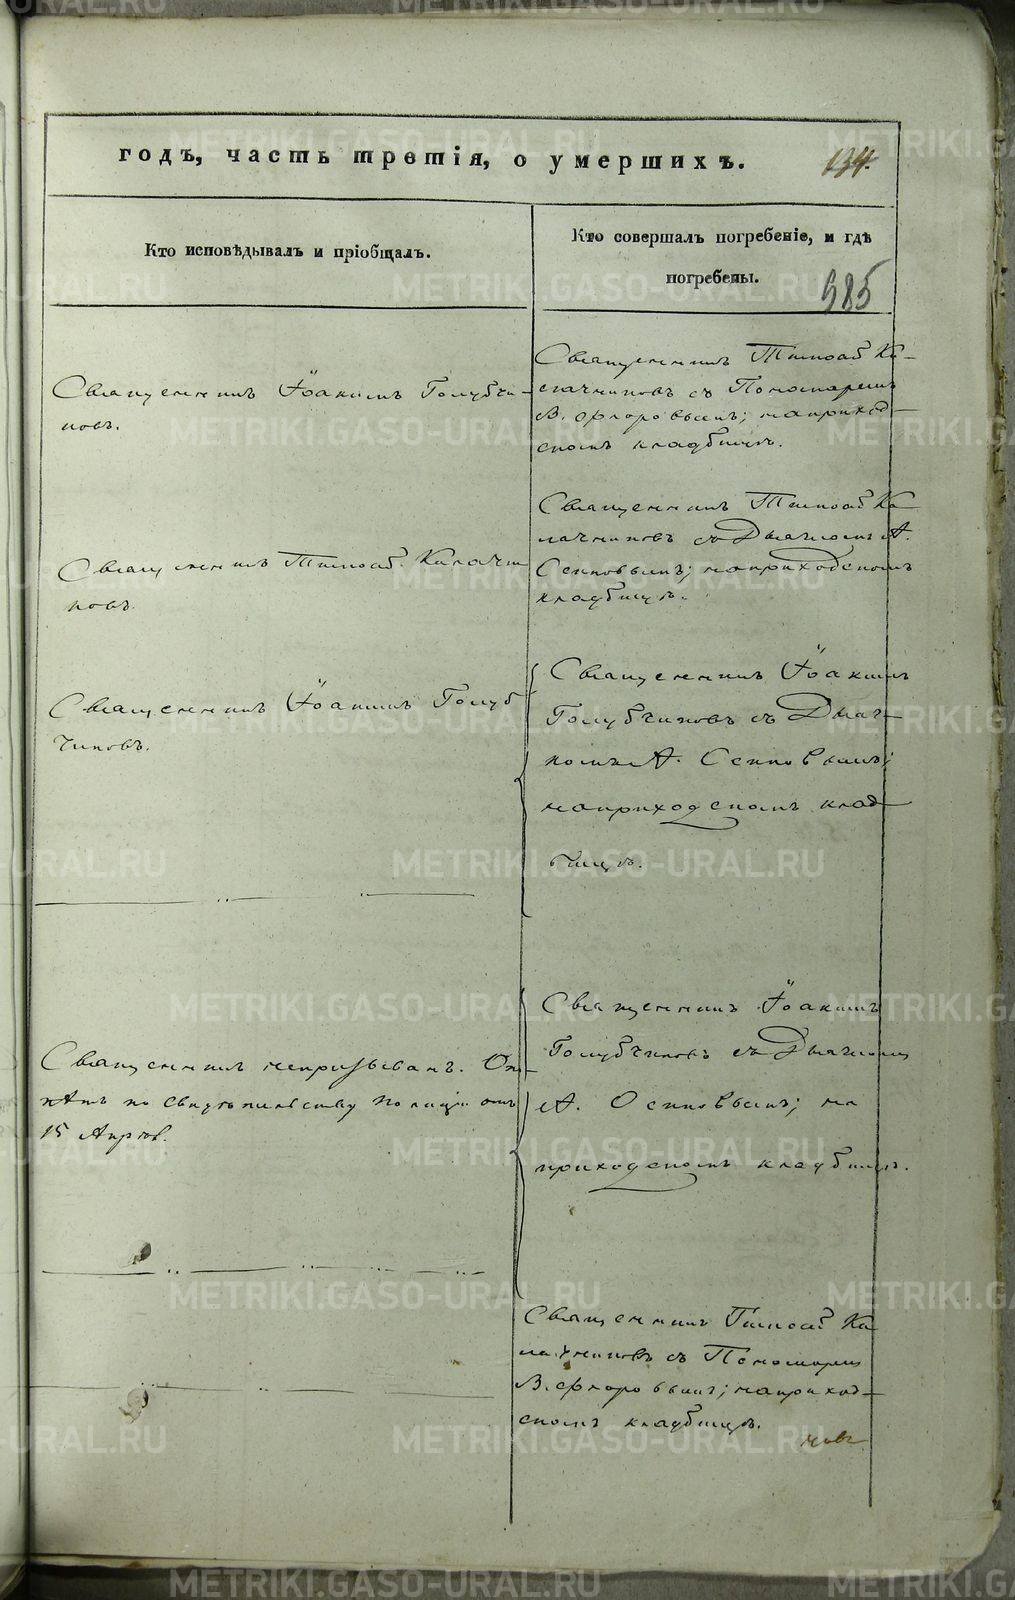 годъ, часть третія, о умершихъ.
134.
Кто исповѣдывалъ и пріобщалъ.
Кто совершалъ погребеніе, и гдѣ
погребены.
985
Священникъ Іоакимъ Голубчи-
ковъ.
Священникъ Тимоѳей Ка-
лачниковъ съ Пономаремъ
В. Флоровымъ; на приход-
скомъ кладбищѣ.
Священникъ Тимоѳей Калачни
ковъ.
Священникъ Тимоѳей Ка
лачниковъ съ Дьячкомъ А.
Осиповымъ; на приходскомъ
кладбищѣ.
Священникъ Іоакимъ Голуб
чиковъ.
Священникъ Іоакимъ
Голубчиковъ съ Дьяч-
комъ А. Осиповымъ;
на приходскомъ клад
бищѣ.
Священникъ непризыванъ.
по свидѣтельству Полиціи отъ
15 Апрѣл.
Священникъ Іоакимъ
Голубчиковъ съ Дьячкомъ
А. Осиповымъ; на
приходскомъ кладбищѣ.
Священникъ Тимоѳей Ка
лачниковъ съ Пономаремъ
В. Флоровымъ; на приход-
скомъ кладбищѣ.
METRIKI.GASO-URAL.RU